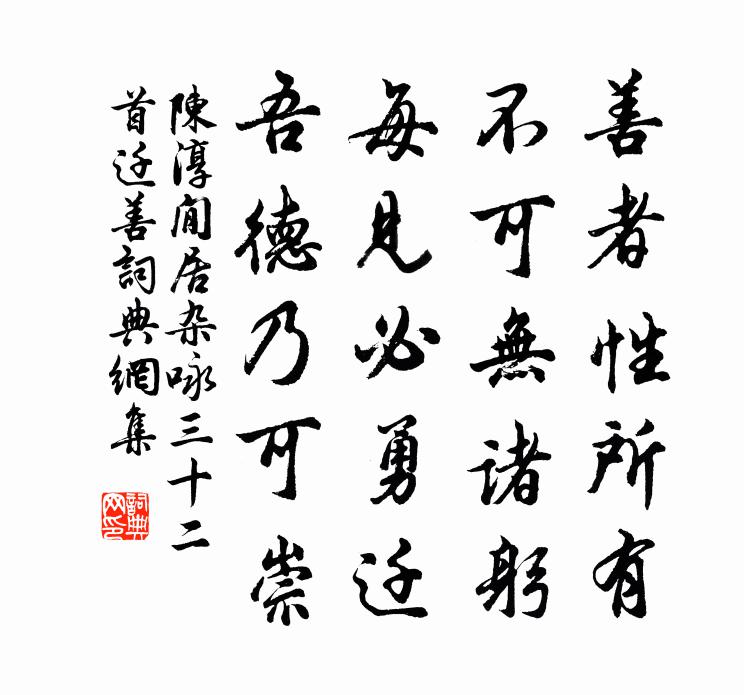 善者性所有
不可無諸躬
每見必勇迁
吾德乃可崇
陳淳閒居杂咏三十二
首迁善詞典網集
詞典
网印